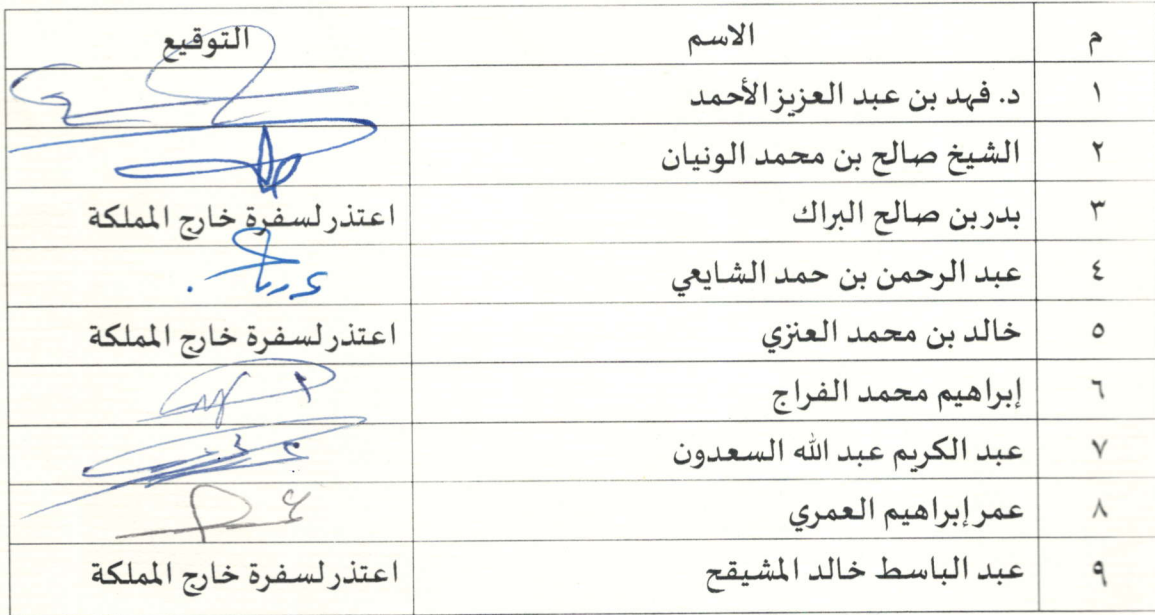 م الاسم التوقيع
١ د. فهد بن عبد العزيز الأحمد
٢ الشيخ صالح بن محمد الونيان
٣ بدر بن صالح البراك اعتذر لسفرة خارج المملكة
٤ عبد الرحمن بن حمد الشايعي
٥ خالد بن محمد العنزي اعتذر لسفرة خارج المملكة
٦ إبراهيم محمد الفراج
٧ عبد الكريم عبد الله السعدون
٨ عمر إبراهيم العمري
٩ عبد الباسط خالد المشيقح اعتذر لسفرة خارج المملكة